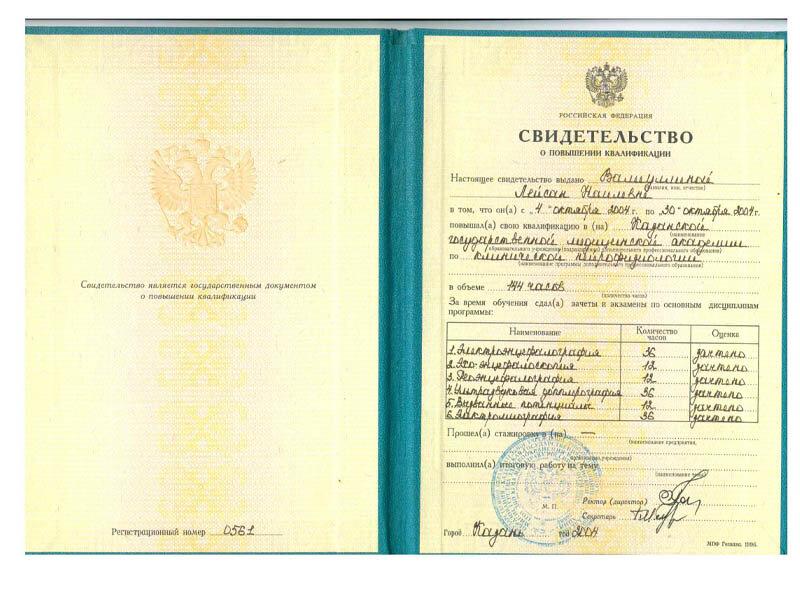 Свидетельство является государственным документом
о повышении квалификации
Регистрационный номер 0561
РОССИЙСКАЯ ФЕДЕРАЦИЯ
СВИДЕТЕЛЬСТВО
О ПОВЫШЕНИИ КВАЛИФИКАЦИИ
Настоящее свидетельство выдано Валиуллиной
(фамилия, имя, отчество)
Лейсан Наилевне
в том, что он(а) с "4" октября 2004 г. по "30" октября 2004 г.
повышал(а) свою квалификацию в (на) Казанской
(наименование
государственной медицинской академии
образовательного учреждения (подразделения) дополнительного профессионального образования)
по клинической нейрофизиологии
(наименование программы дополнительного профессионального образования)
в объеме 144 часов
(количество часов)
За время обучения сдал(а) зачеты и экзамены по основным дисциплинам
программы:
Наименование Количество часов Оценка
1. Электроэнцефалография 36 зачтено
2. Эхо-энцефалоскопия 12 зачтено
3. Реоэнцефалография 12 зачтено
4. Ультразвуковая допплерография 36 зачтено
5. Вызванные потенциалы 12 зачтено
6. Электромиография 36 зачтено
Прошел(а) стажировку в (на) —
(наименование предприятия,
организации, учреждения)
выполнил(а) итоговую работу на тему
(наименование темы)
М. П.
Ректор (директор)
Секретарь
Город Казань год 2004
МПФ Гознака. 1996.